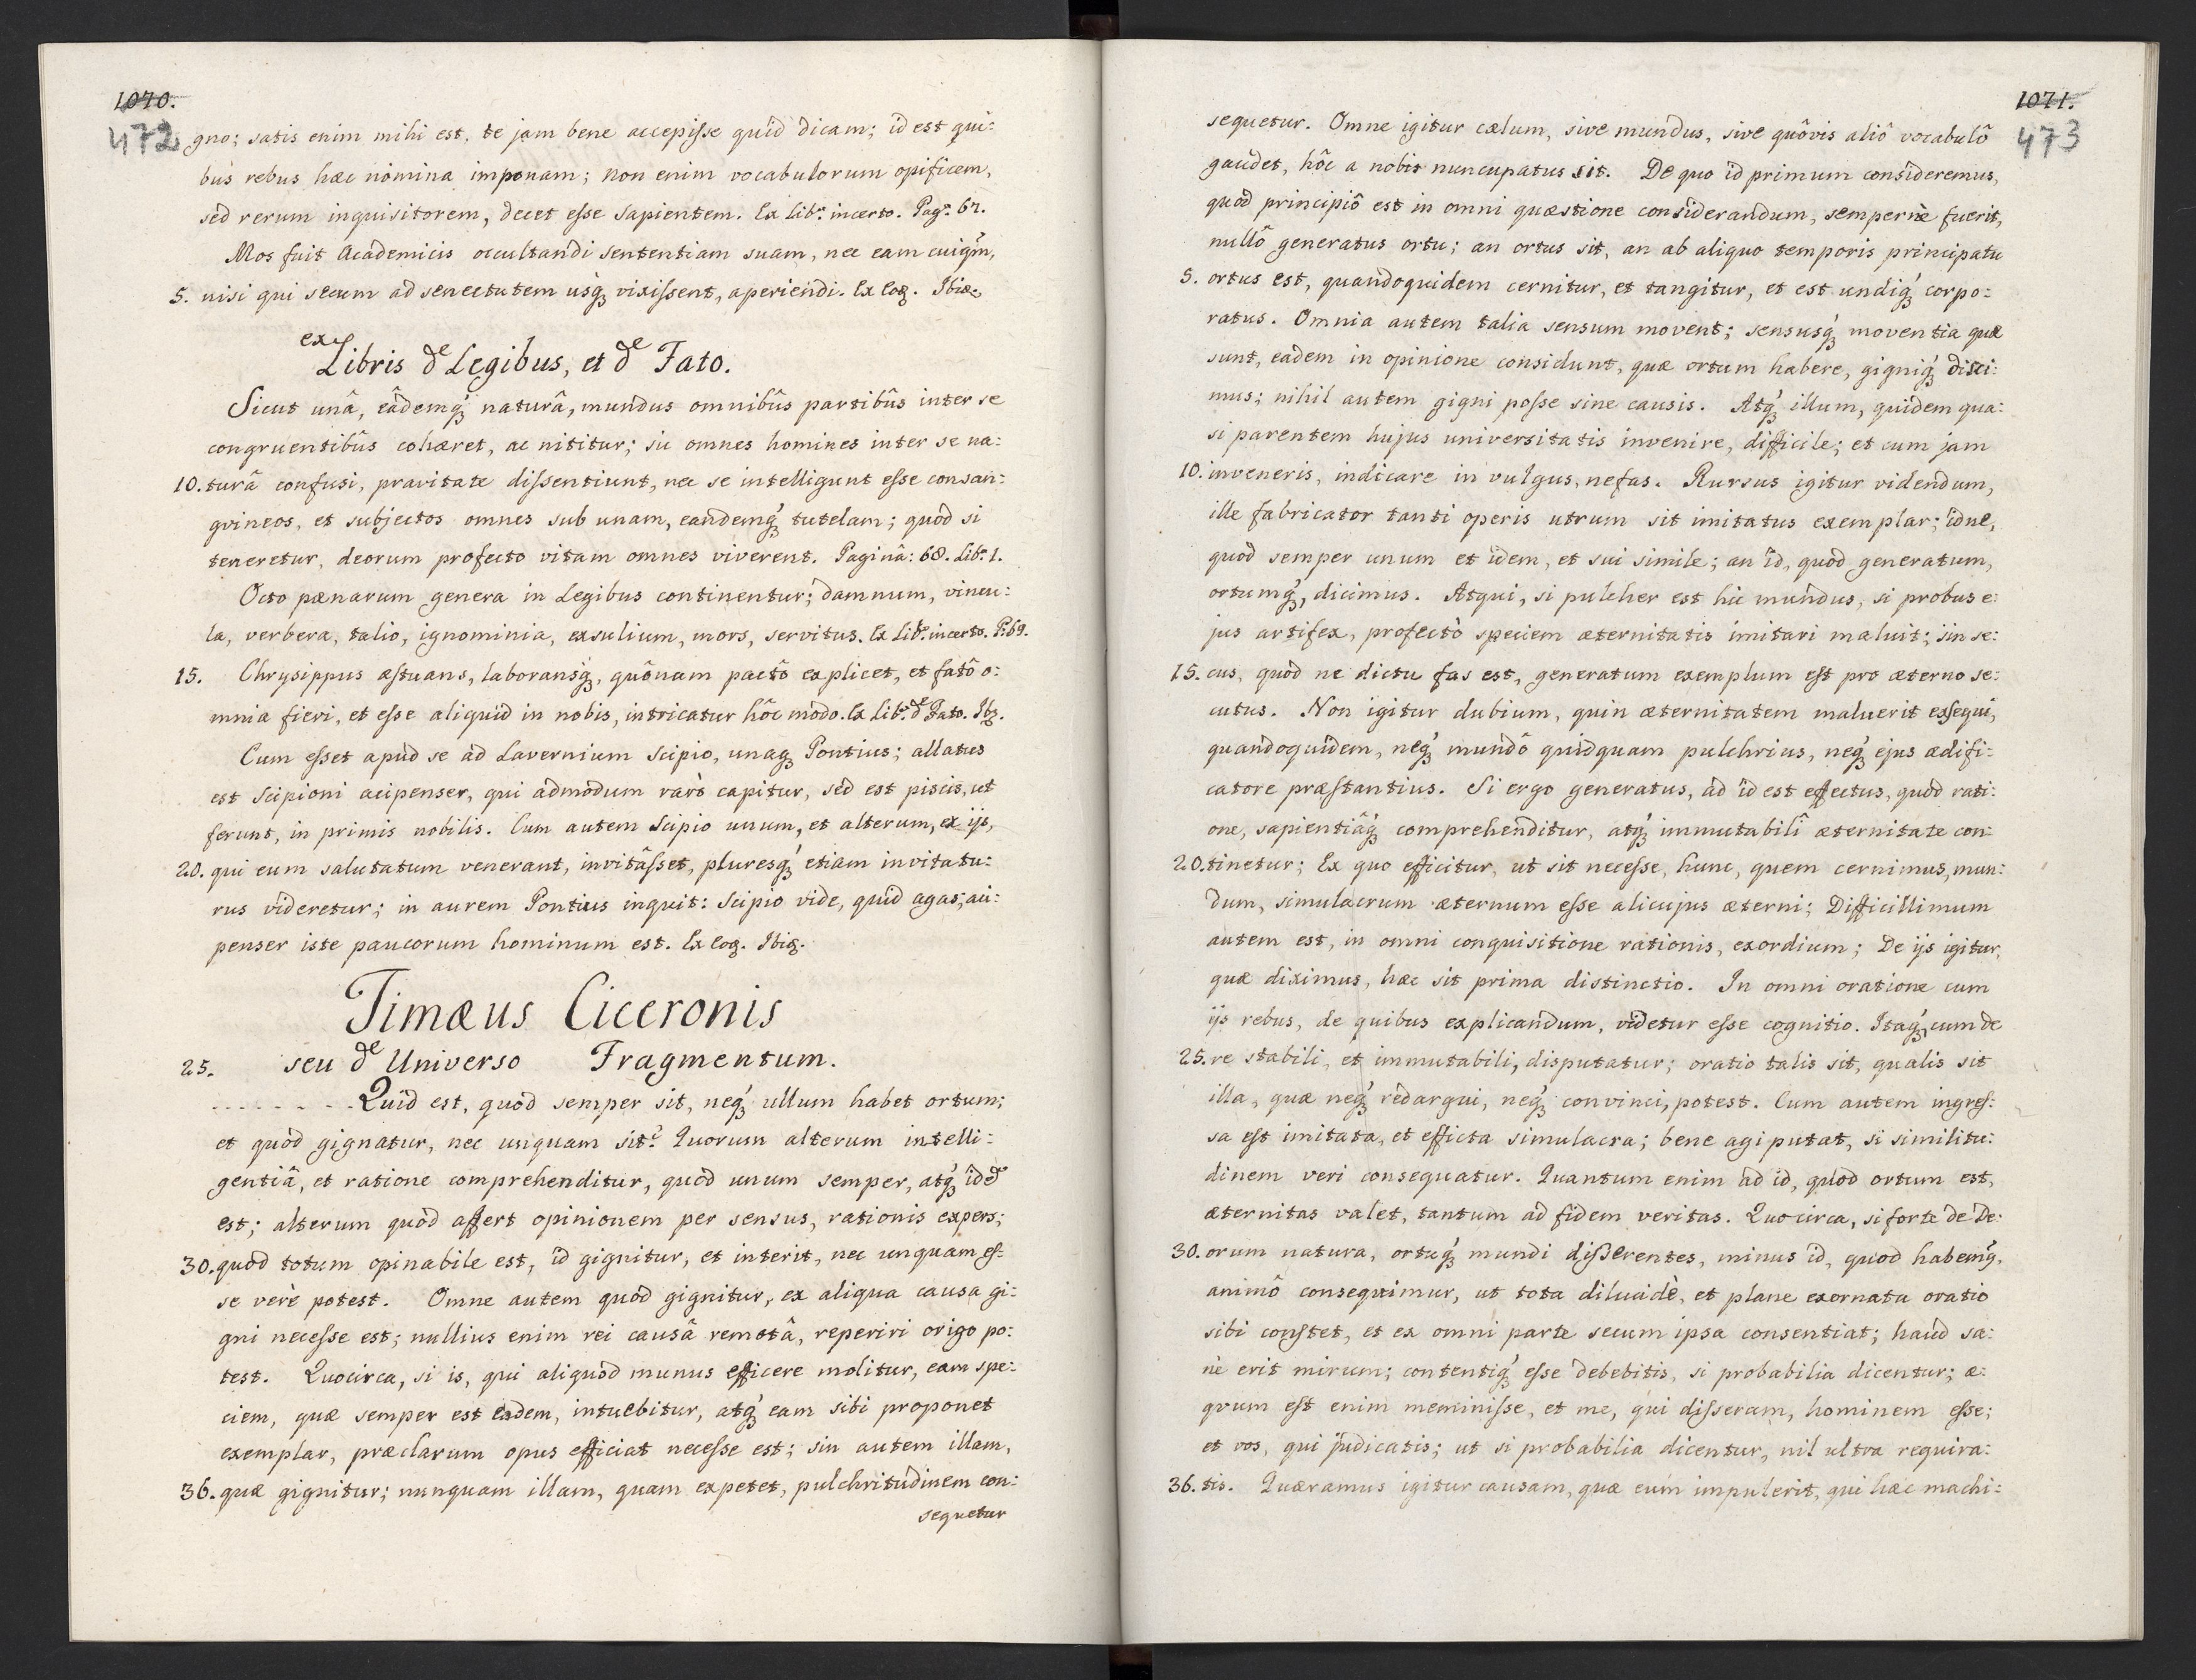 1070.
472
gno; satis enim mihi est, te jam bene accepisse quid dicam; id est qui:
bus rebus hæc nomina imponam; non enim vocabulorum opificem,
sed rerum inquisitorem, decet esse sapientem. Ex Lib: incerto. Pag: 67.
Mos fuit Academicis occultandi sententiam suam, nec eam cuiqm̃,
5. nisi qui secum ad senectutem usq́ꝫ vixissent, aperiendi. Ex Eoꝫ. Ibiꝫ
ex
Libris de Legibus, et de Fato.
Sicut unâ, eâdemq́ꝫ naturâ, mundus omnibûs partibûs inter se
congruentibûs cohæret, ac nititur; sic omnes homines inter se na:
10. turâ confusi, pravitate dissentiunt, nec se intelligunt esse consan:
gvineos, et subjectos omnes sub unam, eandemq́ꝫ tutelam; quod si
teneretur, deorum profecto vitam omnes viverent. Paginâ: 68. Lib: 1.
Octo pænarum genera in Legibus continentur; damnum, vincu:
la, verbera, talio, ignominia, exsulium, mors, servitus. Ex Lib: incerto. P: 69.
15. Chrysippus æstuans, laboransq́ꝫ, quônam pactô explicet, et fatô o:
mnia fieri, et esse aliquid in nobis, intricatur hôc modo. Ex Lib: de Fato. Ibꝫ.
Cum esset apud se ad Lavernium Scipio, unaqꝫ Pontius; allatus
est Scipioni acipenser, qui admodum rarò capitur, sed est piscis, ut
ferunt, in primis nobilis. Cum autem Scipio unum, et alterum, ex ijs,
20. qui eum salutatum venerant, invitâsset, pluresq́ꝫ etiam invitatu:
rus videretur; in aurem Pontius inquit: Scipio vide, quid agas; aci:
penser iste paucorum hominum est. Ex Eoꝫ. Ibiꝫ.
Timæus Ciceronis
25. seu de Universo Fragmentum.
- - - - - - - Quid est, quod semper sit, neq́ꝫ ullum habet ortum;
et quod gignatur, nec unquam sit? Quorum alterum intelli:
gentiâ, et ratione comprehenditur, quod unum semper, atq́ꝫ idē
est; alterum quod affert opinionem per sensus, rationis expers;
30. quod totum opinabile est, id gignitur, et interit, nec unquam es:
se verè potest. Omne autem quod gignitur, ex aliqua causa gi:
gni necesse est; nullius enim rei causâ remotâ, reperiri origo po:
test. Quocirca, si is, qui aliquod munus efficere molitur, eam spe:
ciem, quæ semper est eadem, intuebitur, atq́ꝫ eam sibi proponet
exemplar, præclarum opus efficiat necesse est; sin autem illam,
36. quæ gignitur; nunquam illam, quam expetet, pulchritudinem con:
sequetur
1071.
473
sequetur. Omne igitur cælum, sive mundus, sive quôvis aliô vocabulô
gaudet, hôc a nobis nuncupatus sit. De quo id primum consideremus,
quod principiô est in omni quæstione considerandum, semperne fuerit,
nullô generatus ortu; an ortus sit, an ab aliquo temporis principatu
5. ortus est, quandoquidem cernitur, et tangitur, et est undiq́ꝫ corpo:
ratus. Omnia autem talia sensum movent; sensusq́ꝫ moventia quæ
sunt, eadem in opinione considunt, quæ ortum habere, gigniq́ꝫ dixi:
mus; nihil autem gigni posse sine causis. Atq́ꝫ illum, quidem qua:
si parentem hujus universitatis invenire, difficile; et cum jam
10. inveneris, indicare in vulgus, nefas. Rursus igitur videndum,
ille fabricator tanti operis utrum sit imitatus exemplar; idne,
quod semper unum et idem, et sui simile; an id, quod generatum,
ortumq́ꝫ, dicimus. Atqui, si pulcher est hic mundus, si probus e:
jus artifex, profectò speciem æternitatis imitari maluit; sin se:
15. cus, quod ne dictu fas est, generatum exemplum est pro æterno se:
cutus. Non igitur dubium, quin æternitatem maluerit exsequi,
quandoquidem, neq́ꝫ mundô quidquam pulchrius, neq́ꝫ ejus ædifi:
catore præstantius. Si ergo generatus, ad id est effectus, quod rati:
one, sapientiâq́ꝫ comprehenditur, atq́ꝫ immutabilî æternitate con:
20. tinetur; Ex quo efficitur, ut sit necesse, hunc, quem cernimus, mun:
dum, simulacrum æternum esse alicujus æterni; Difficillimum
autem est, in omni conquisitione rationis, exordium; De ijs igitur,
quæ diximus, hæc sit prima distinctio. In omni oratione cum
ijs rebus, de quibus explicandum, videtur esse cognitio. Itaq́ꝫ, cum de
25. re stabili, et immutabili, disputatur; oratio talis sit, qualis sit
illa, quæ neq́ꝫ redargui, neq́ꝫ convinci, potest. Cum autem ingres:
sa est imitata, et efficta simulacra; bene agi putat, si similitu:
dinem veri consequatur. Quantum enim ad id, quod ortum est,
æternitas valet, tantum ad fidem veritas. Quocirca, si forte de De:
30. orum natura, ortuq́ꝫ mundi disserentes, minus id, quod habemꝫ,
animô consequimur, ut tota dilucidè, et plane exornata oratio
sibi constet, et ex omni parte secum ipsa consentiat; haud sa:
nè erit mirum; contentiq́ꝫ esse debebitis, si probabilia dicentur; æ:
qvum est enim meminisse, et me, qui disseram, hominem esse;
et vos, qui judicatis; ut si probabilia dicentur, nil ultra requira:
36. tis. Quæramus igitur causam, quæ eum impulerit, qui hæc machi: